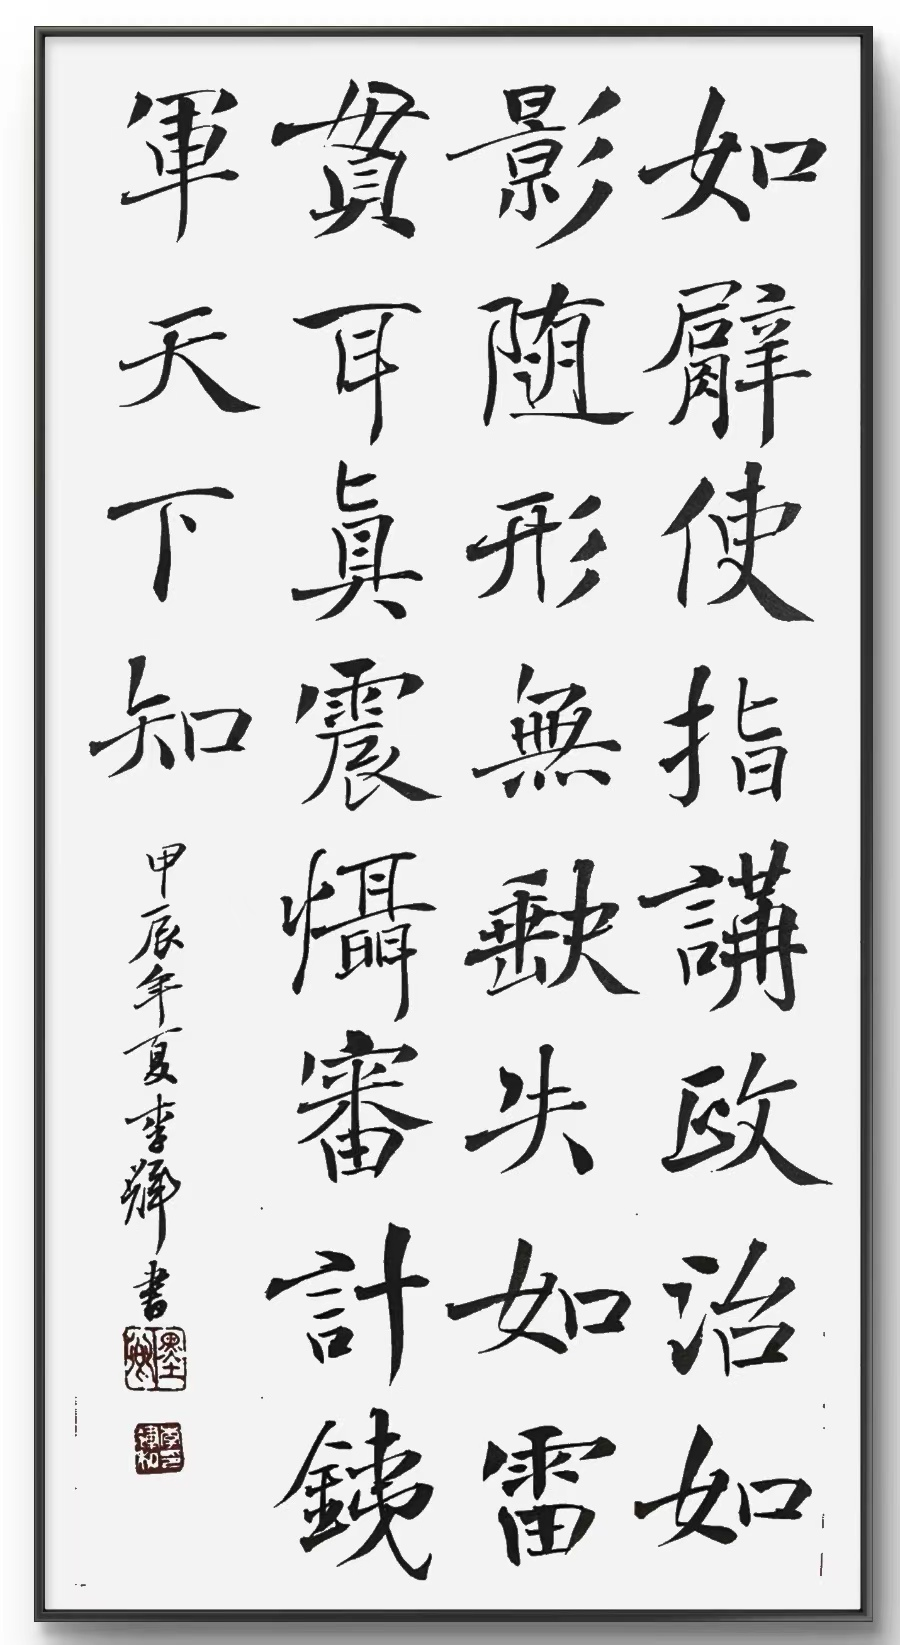 如臂使指講政治如
影随形無缺失如雷
貫耳真震懾審計鐵
軍天下知
甲辰年夏李輝書